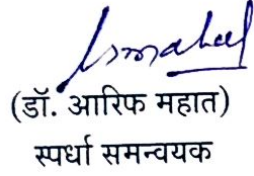 (डॉ. आरिफ महात)
स्पर्धा समन्वयक